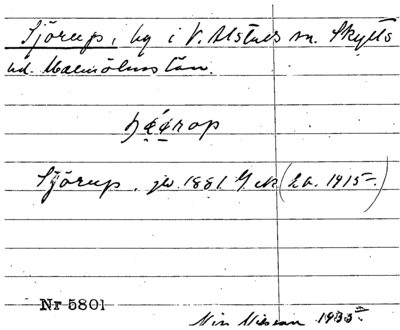 Sjörup, by i V. Alstads sn. Skytts
hd. Malmöhus län.
Sjörup. jw. 1881
(ea. 1915.)
Nr 5801
Nils Nilsson 1935